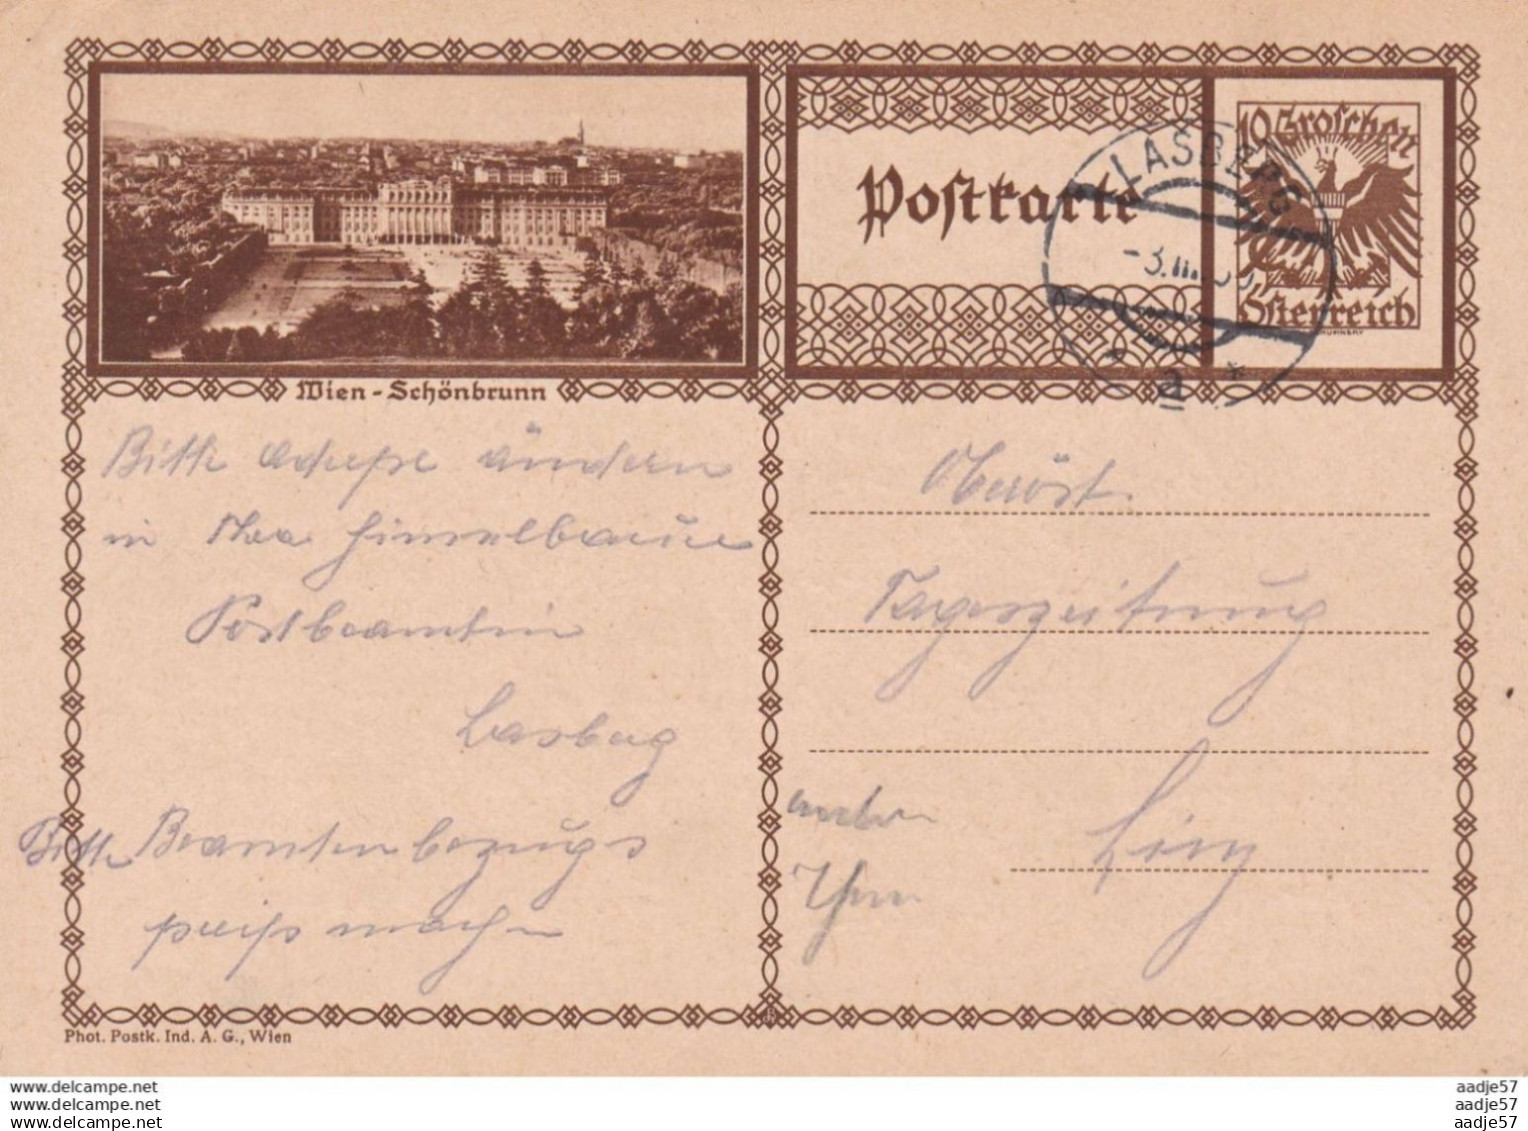 Wien - Schönbrunn
Postkarte
10 Groschen
Österreich
LASBERG
-3.III.
a
Bitte Adresse ändern
in Thea Himmelbauer
Postbeamtin
Lasberg
Bitte Beamtenbezugs
preiß machen
Oberöst.
Tageszeitung
Linz
Phot. Postk. Ind. A. G., Wien
www.delcampe.net
www.delcampe.net
www.delcampe.net
aadje57
aadje57
aadje57